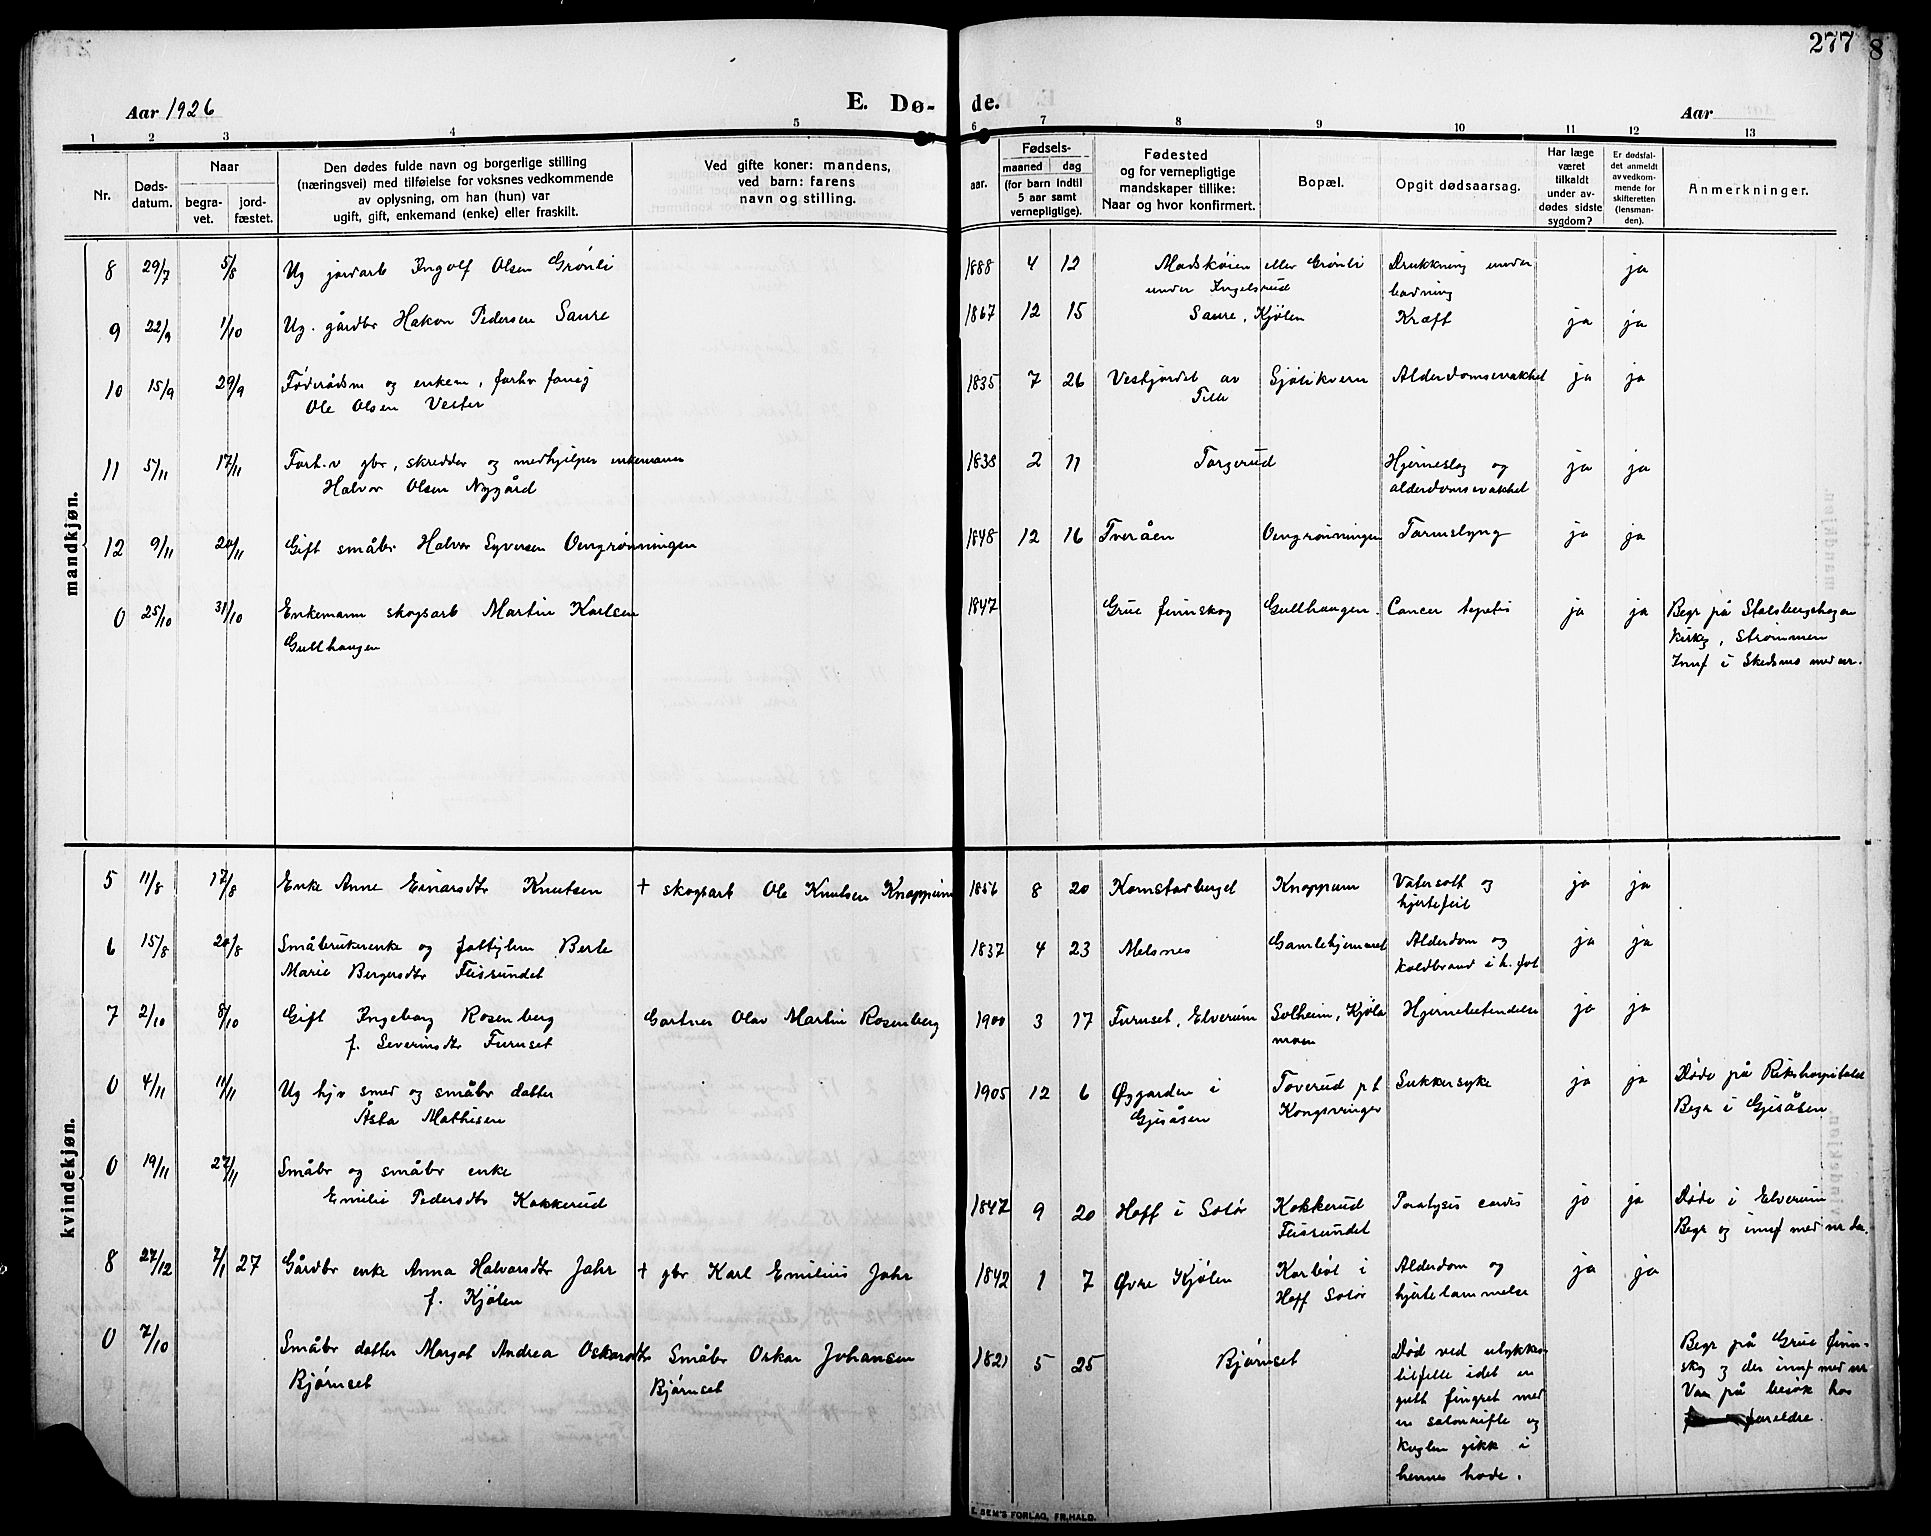 277 8
Aar 1926
E. Dø-
de.
Aar
1 2 3 4 5 6 7 8 9 10 11 12 13
Nr.
Døds-
datum.
Naar
begra-
vet.
jord-
fæstet.
Den dødes fulde navn og borgerlige stilling
(næringsvei) med tilføielse for voksnes vedkommende
av oplysning, om han (hun) var
ugift, gift, enkemand (enke) eller fraskilt.
Ved gifte koner: mandens,
ved barn: farens
navn og stilling.
Fødsels-
aar.
maaned dag
(for barn indtil
5 aar samt
vernepligtige).
Fødested
og for vernepligtige
mandskaper tillike:
Naar og hvor konfirmert.
Bopæl.
Opgit dødsaarsag.
Har læge
været
tilkaldt
under av-
dødes sidste
sygdom?
Er dødsfal-
det anmeldt
av vedkom-
mende for
skifteretten
(lensman-
den).
Anmerkninger.
mandkjøn.
8 29/7 5/8 Ug jordarb Ingolf Olsen Grønli 1888 4 12 Madskøien eller Grønli Drukkning under ja
under Ingelsrud badning
9 22/9 1/10 Ug. gårdbr Hakon Pedersen Saure 1867 12 15 Saure, Kjølen Kræft ja ja
10 15/9 29/9 Føderådsm og enkem, forhv 1835 7 26 Vestjordet av Sjølikvern Alderdomssvakhet ja ja
Ole Olsen Vester Tille
11 5/11 17/11 Forh.v gbr, skredder og medhjelper enkemann 1838 2 11 Torgerud Hjerneslag og ja ja
Halvor Olsen Nygård alderdomssvakhet
12 9/11 20/11 Gift småbr Halvor Syversen Ovengrønningen 1848 12 16 Tveråen Ovengrønningen Tarmslyng ja ja
0 25/10 31/10 Enkemann skogsarb Martin Karlsen 1847 Grue finnskog Gullhaugen. Cancer ja ja Begr på Stalsberghagen
Gullhaugen kirkeg, Strømmen
Innf i Skedsmo med nr.
kvindekjøn.
5 11/8 17/8 Enke Anne Einarsdtr Knutsen + skogsarb Ole Knutsen Knappum 1856 8 20 Kornstadberget Knappum Vatersott og ja ja
hjertefeil
6 15/8 20/8 Småbrukerenke og fattiglem Berte 1837 4 23 Melsnes Gamlehjemmet Alderdom og ja ja
Marie Bergersdtr Flissundet koldbrand i h. fot
7 2/10 8/10 Gift Ingeborg Rosenberg Gartner Olav Martin Rosenberg 1900 3 17 Furuset, Elverum Solheim, Kjøla Hjernebetendelse ja ja
f. Severinsdtr Furuset moen
0 4/11 11/11 Ug hjv smed og småbr datter 1905 12 6 Øygarden i Toverud p t Sukkersyke ja ja Døde på Rikshospitalet
Åsta Mathisen Gjesåsen Kongsvinger Begr i Gjesåsen
0 19/11 27/11 Småbr og småbr enke
Emilie Pedersdtr Kokkerud 1847 9 20 Hoff i Solør Kokkerud Paralysis cordis ja ja Døde i Elverum
Flissundet Begr og innf med nr der.
8 27/12 7/1 27 Gårdbr enke Anna Halvorsdtr Jahr + gbr Karl Emilius Jahr 1842 1 7 Øvre Kjølen Karbøl i Alderdom og ja ja
f. Kjølen Hoff Solør hjertelammelse
0 7/10 Småbr datter Margot Andrea Oskarsdtr Småbr Oskar Johansen 1821 5 25 Bjørnset Død ved ulykkes Begr på Grue finn-
Bjørnset Bjørnset tilfelle idet en skog og der innf med nr
gutt fingret med Var på besøk hos
en salonrifle og foreldre.
kuglen gikk i
hennes hode.
E. SEM'S FORLAG, FR.HALD.